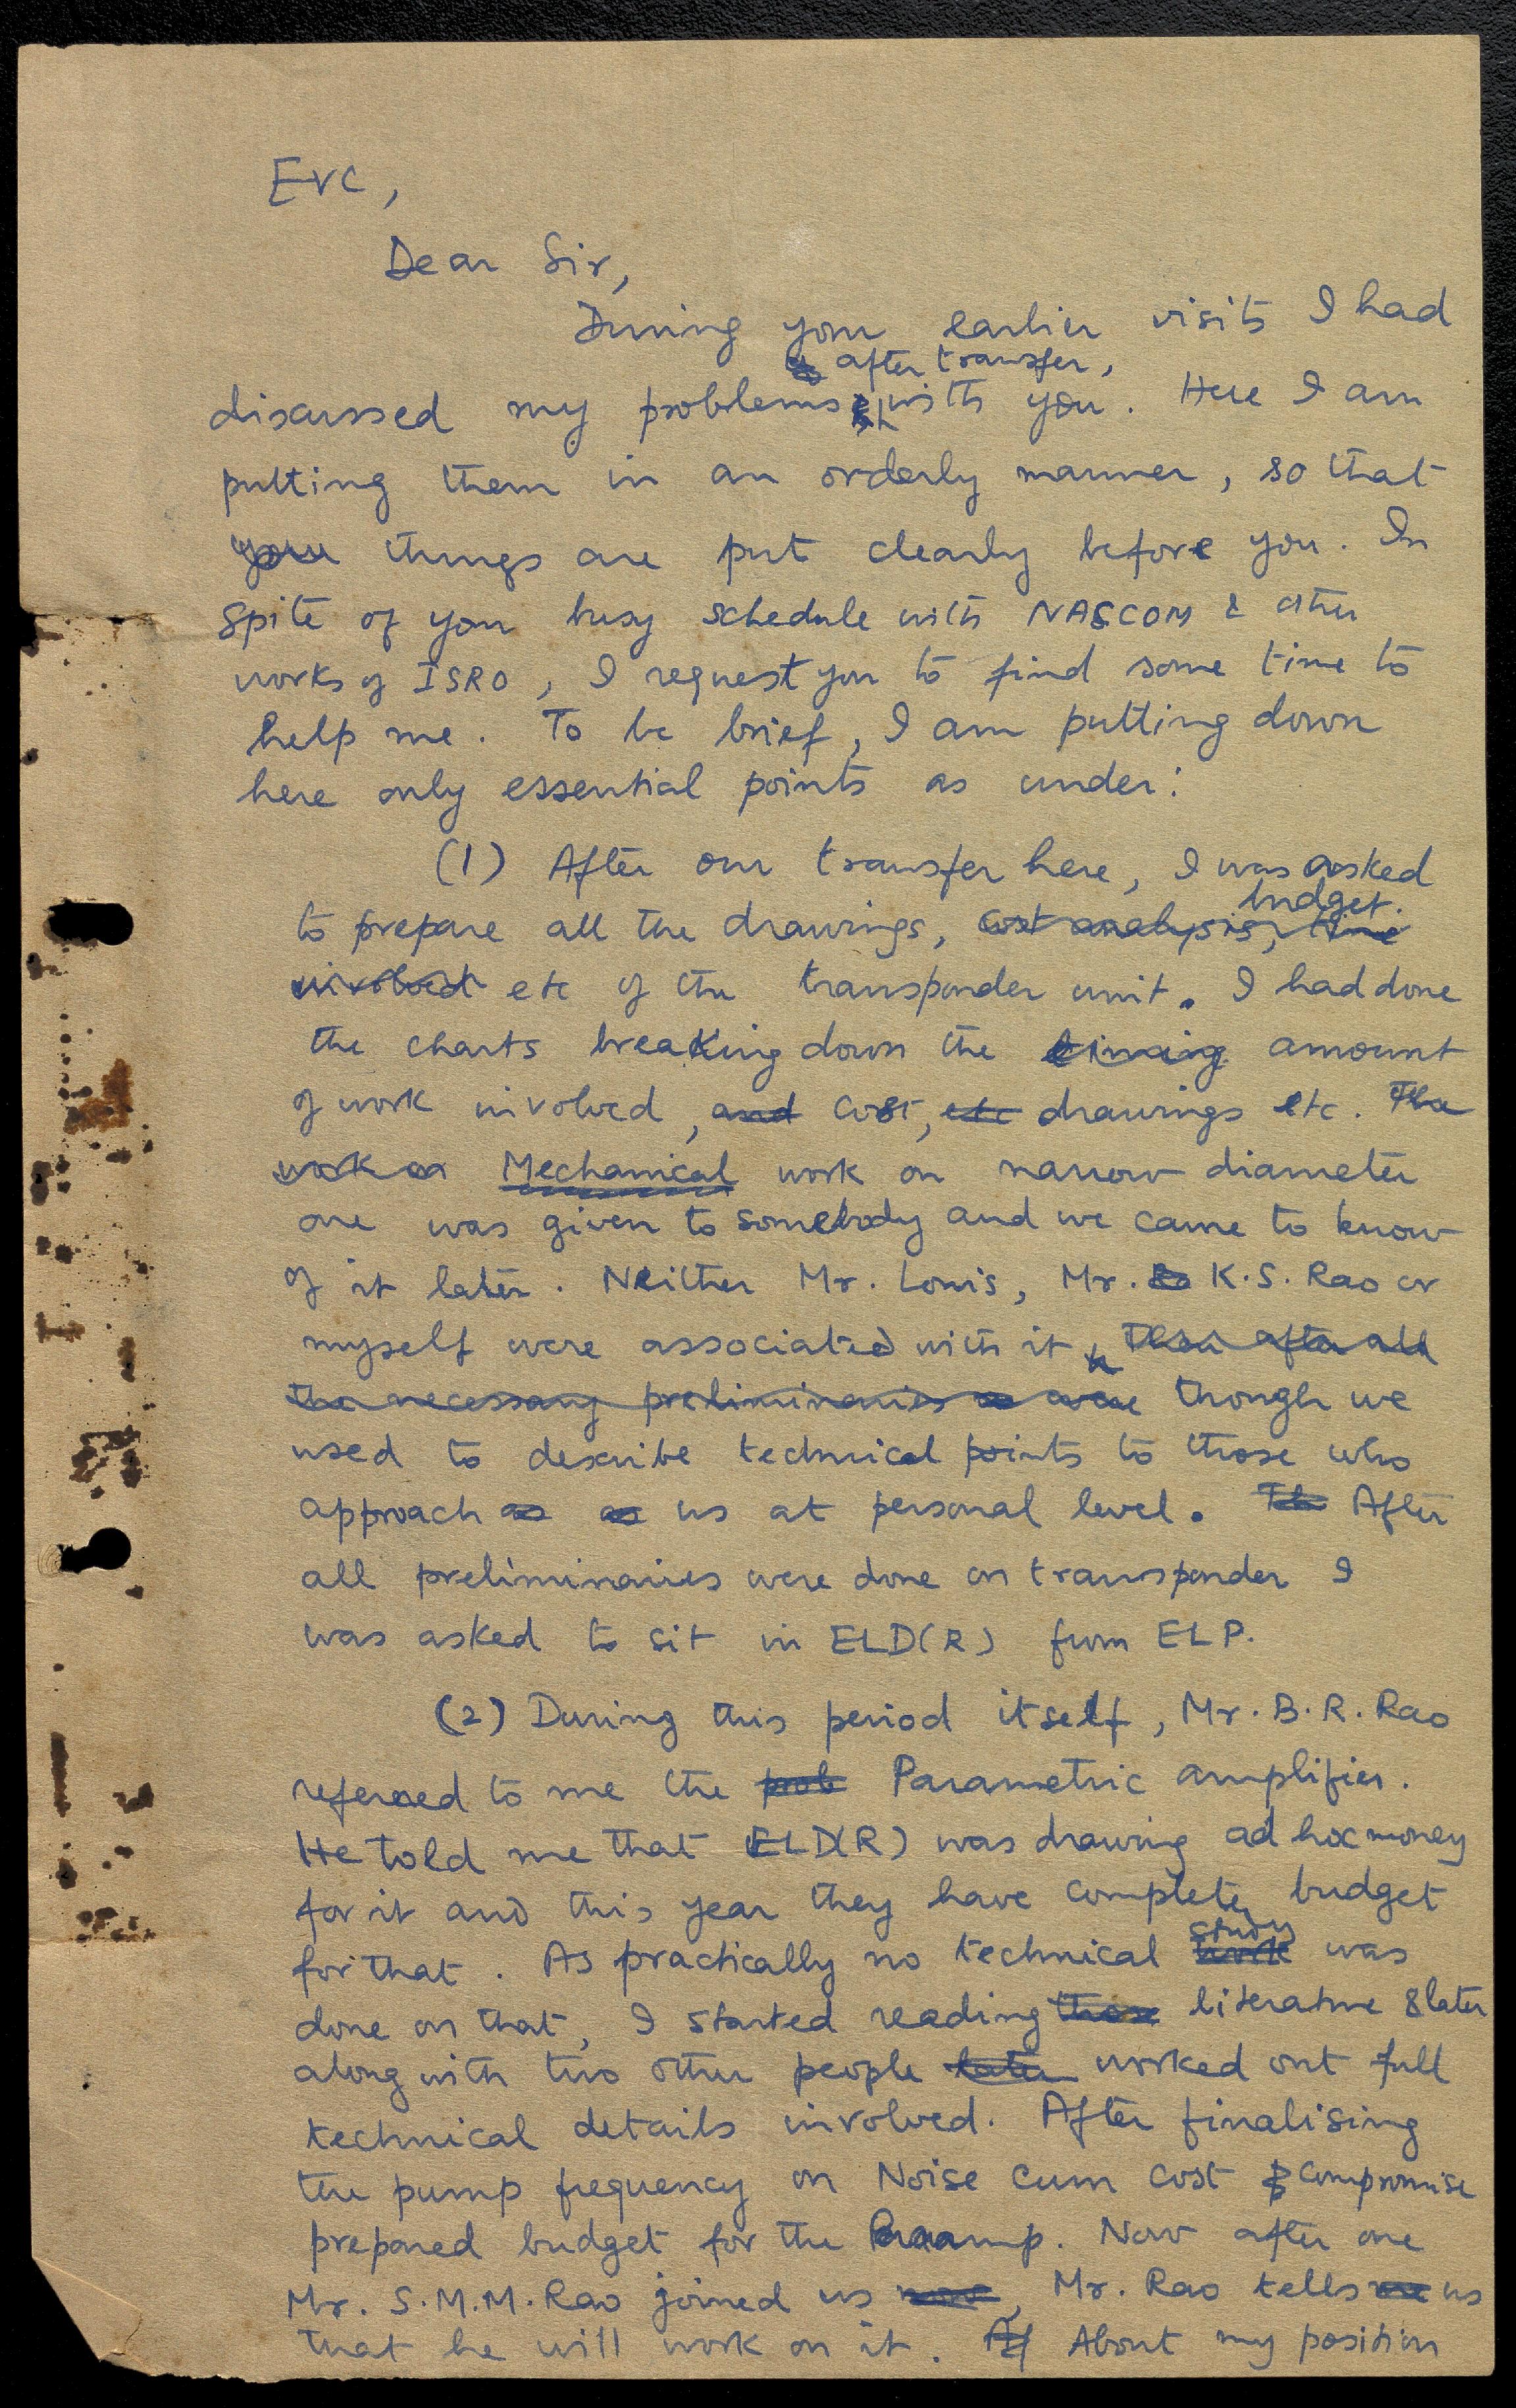 EVC,
Dear Sir,
During your earlier visits I had
after transfer,
discussed my problems with you. Here I am
putting them in an orderly manner, so that
your things are put clearly before you. In
spite of your busy schedule with NASCOM & other
works of ISRO, I request you to find some time to
help me. To be brief, I am putting down
here only essential points as under:
(1) After our transfer here, I was asked
budget.
to prepare all the drawings, cost analysis, time
involved etc of the transponder unit. I had done
the charts breaking down the timing amount
of work involved, and cost, etc drawings etc. The
work on Mechanical work on narrow diameter
one was given to somebody and we came to know
of it later. Neither Mr. Louis, Mr. K.S. Rao or
myself were associated with it, Then after all
the necessary preliminaries were though we
used to describe technical points to those who
approach as as us at personal level. The After
all preliminaries were done on transponder I
was asked to sit in ELD(R) from ELP.
(2) During this period itself, Mr. B.R. Rao
refered to me the prob Parametric amplifier.
He told me that ELD(R) was drawing ad hoc money
for it and this year they have complete budget
study
for that. As practically no technical work was
done on that, I started reading those literature & later
along with two other people later worked out full
technical details involved. After finalising
the pump frequency on Noise cum cost compromise
prepared budget for the Paramp. Now after one
Mr. S.M.M. Rao joined us now, Mr. Rao tells me us
that he will work on it. Af About my position